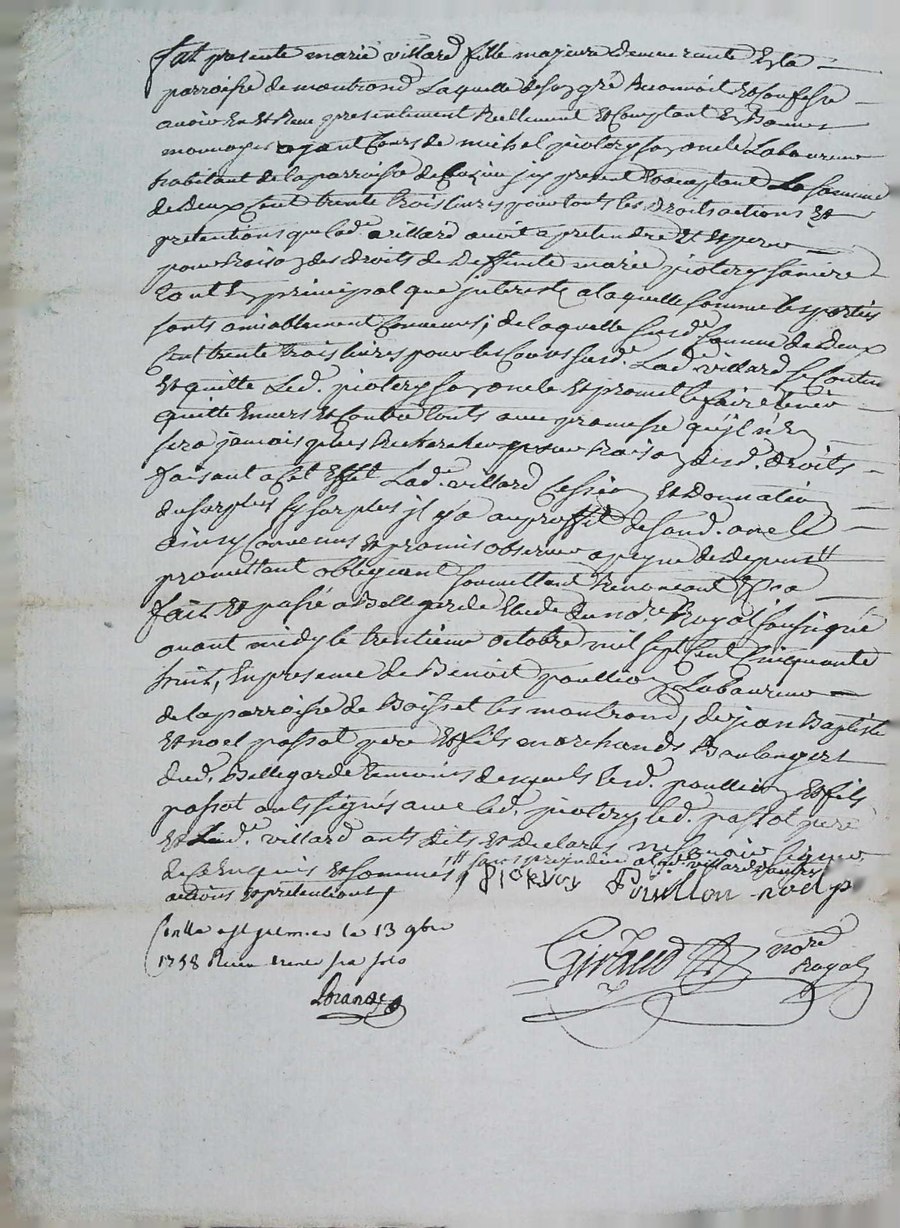 fut presente marie villard fille majeure demeurante En la
parroisse de montrond Laquelle de son gré Reconnoit Et Confesse
avoir En Et Reçu presentement Reellement Et Comptant En Bonnes
monnoyes ayant Cours de michel piotery son oncle Laboureur
habitant de la parroisse de jcy present Et acceptant La somme
de Deux Cent trente trois livres pour touts les Droits actions Et
pretentions que lad.e villard avoit a pretendre Et Esperer
pour Raison des droits de Deffunte marie piotery sa mere
tant En principal que jnterests a laquelle somme les parties
sonts amiablement Convenues; de laquelle susd.e somme de Deux
Cent trente trois livres pour les Causes susd. Lad.e villard se Contente
Et quitte Led. piotery son oncle Et promet le faire tenir
quitte Envers Et Contre touts avec promesse qu'jl n'En
sera jamais plus Recherché pour Raison desd. droits
faisant a Cet Effet Lad.e villard Cession Et Donnation
du surplus sy surplus jl y a au proffit de sond. oncle
ainsy Convenus Et promis observer a peyne de Depens
promettant obligeant soumettant Renonçant
fait Et passé a Bellegarde Etude du no.re Royal soussigné
avant midy le trentieme octobre mil sept Cent Cinquante
huit, En presence de Benoit poullion Laboureur
de la parroisse de Boisset les montrond, de jean Baptiste
Et noel passot pere Et fils marchands Boulangers
dud. Bellegarde temoins desquels led. poullion Et fils
passot onts signés avec led. piotery, led. passot pere
Et Lad.e villard onts dits Et Declarés ne sçavoir signer
de Ce Enquis Et sommés, sans prejudice a lad. villard d'autres
actions Et pretentions
piotery Poullion noel p
Conlle est premier le 13 9bre
1758 Reçu treize
Giraud nore
Royal